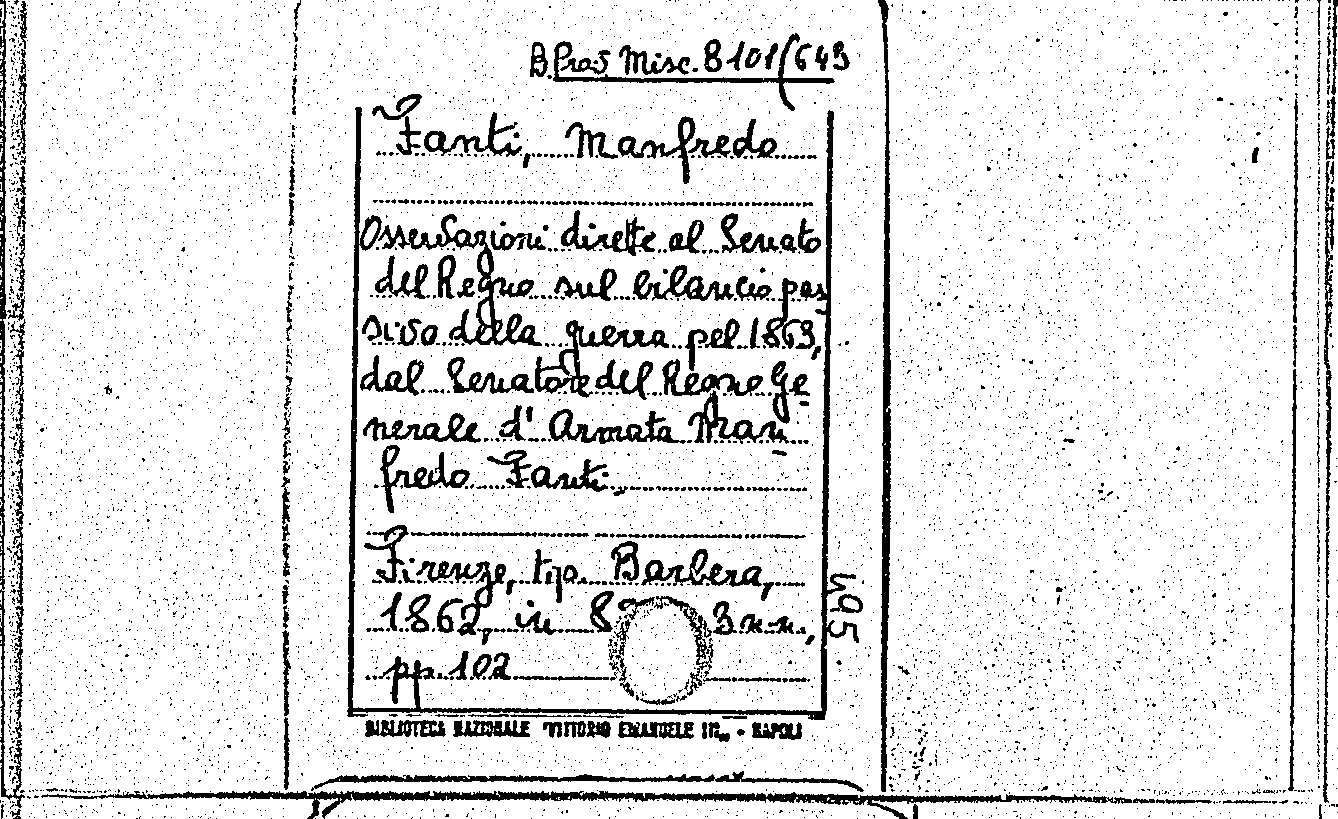 B. Pros Misc. 8101(649
Fanti, Manfredo
Osservazioni dirette al Senato
del Regno sul bilancio pas
sivo della guerra pel 1863,
dal Senatore del Regno Ge
nerale d'Armata Man
fredo Fanti.
Firenze, tip. Barbera,
1862, in 8° 3 n.n.,
pp. 102
495
BIBLIOTECA NAZIONALE "VITTORIO EMANUELE III" - NAPOLI